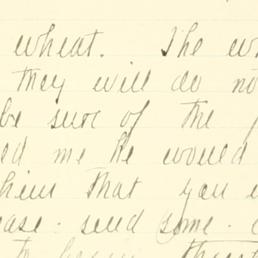 wheat. The
they will do
be sure of the
me he would
him that you
send some.